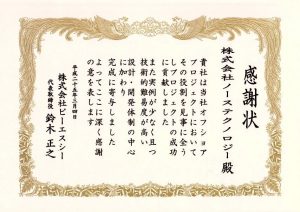 感謝状
株式会社ノーステクノロジー殿
貴社は当社オフショア
プロジェクトにおいて
その役割を見事に全う
しプロジェクトの成功
に貢献しました
また実例が少なく且つ
技術的難易度が高い
設計・開発体制の中心
に加わり
完成に寄与しました
よってここに深く感謝
の意を表します
平成二十五年三月四日
株式会社ビーエスシー
代表取締役 鈴木正之